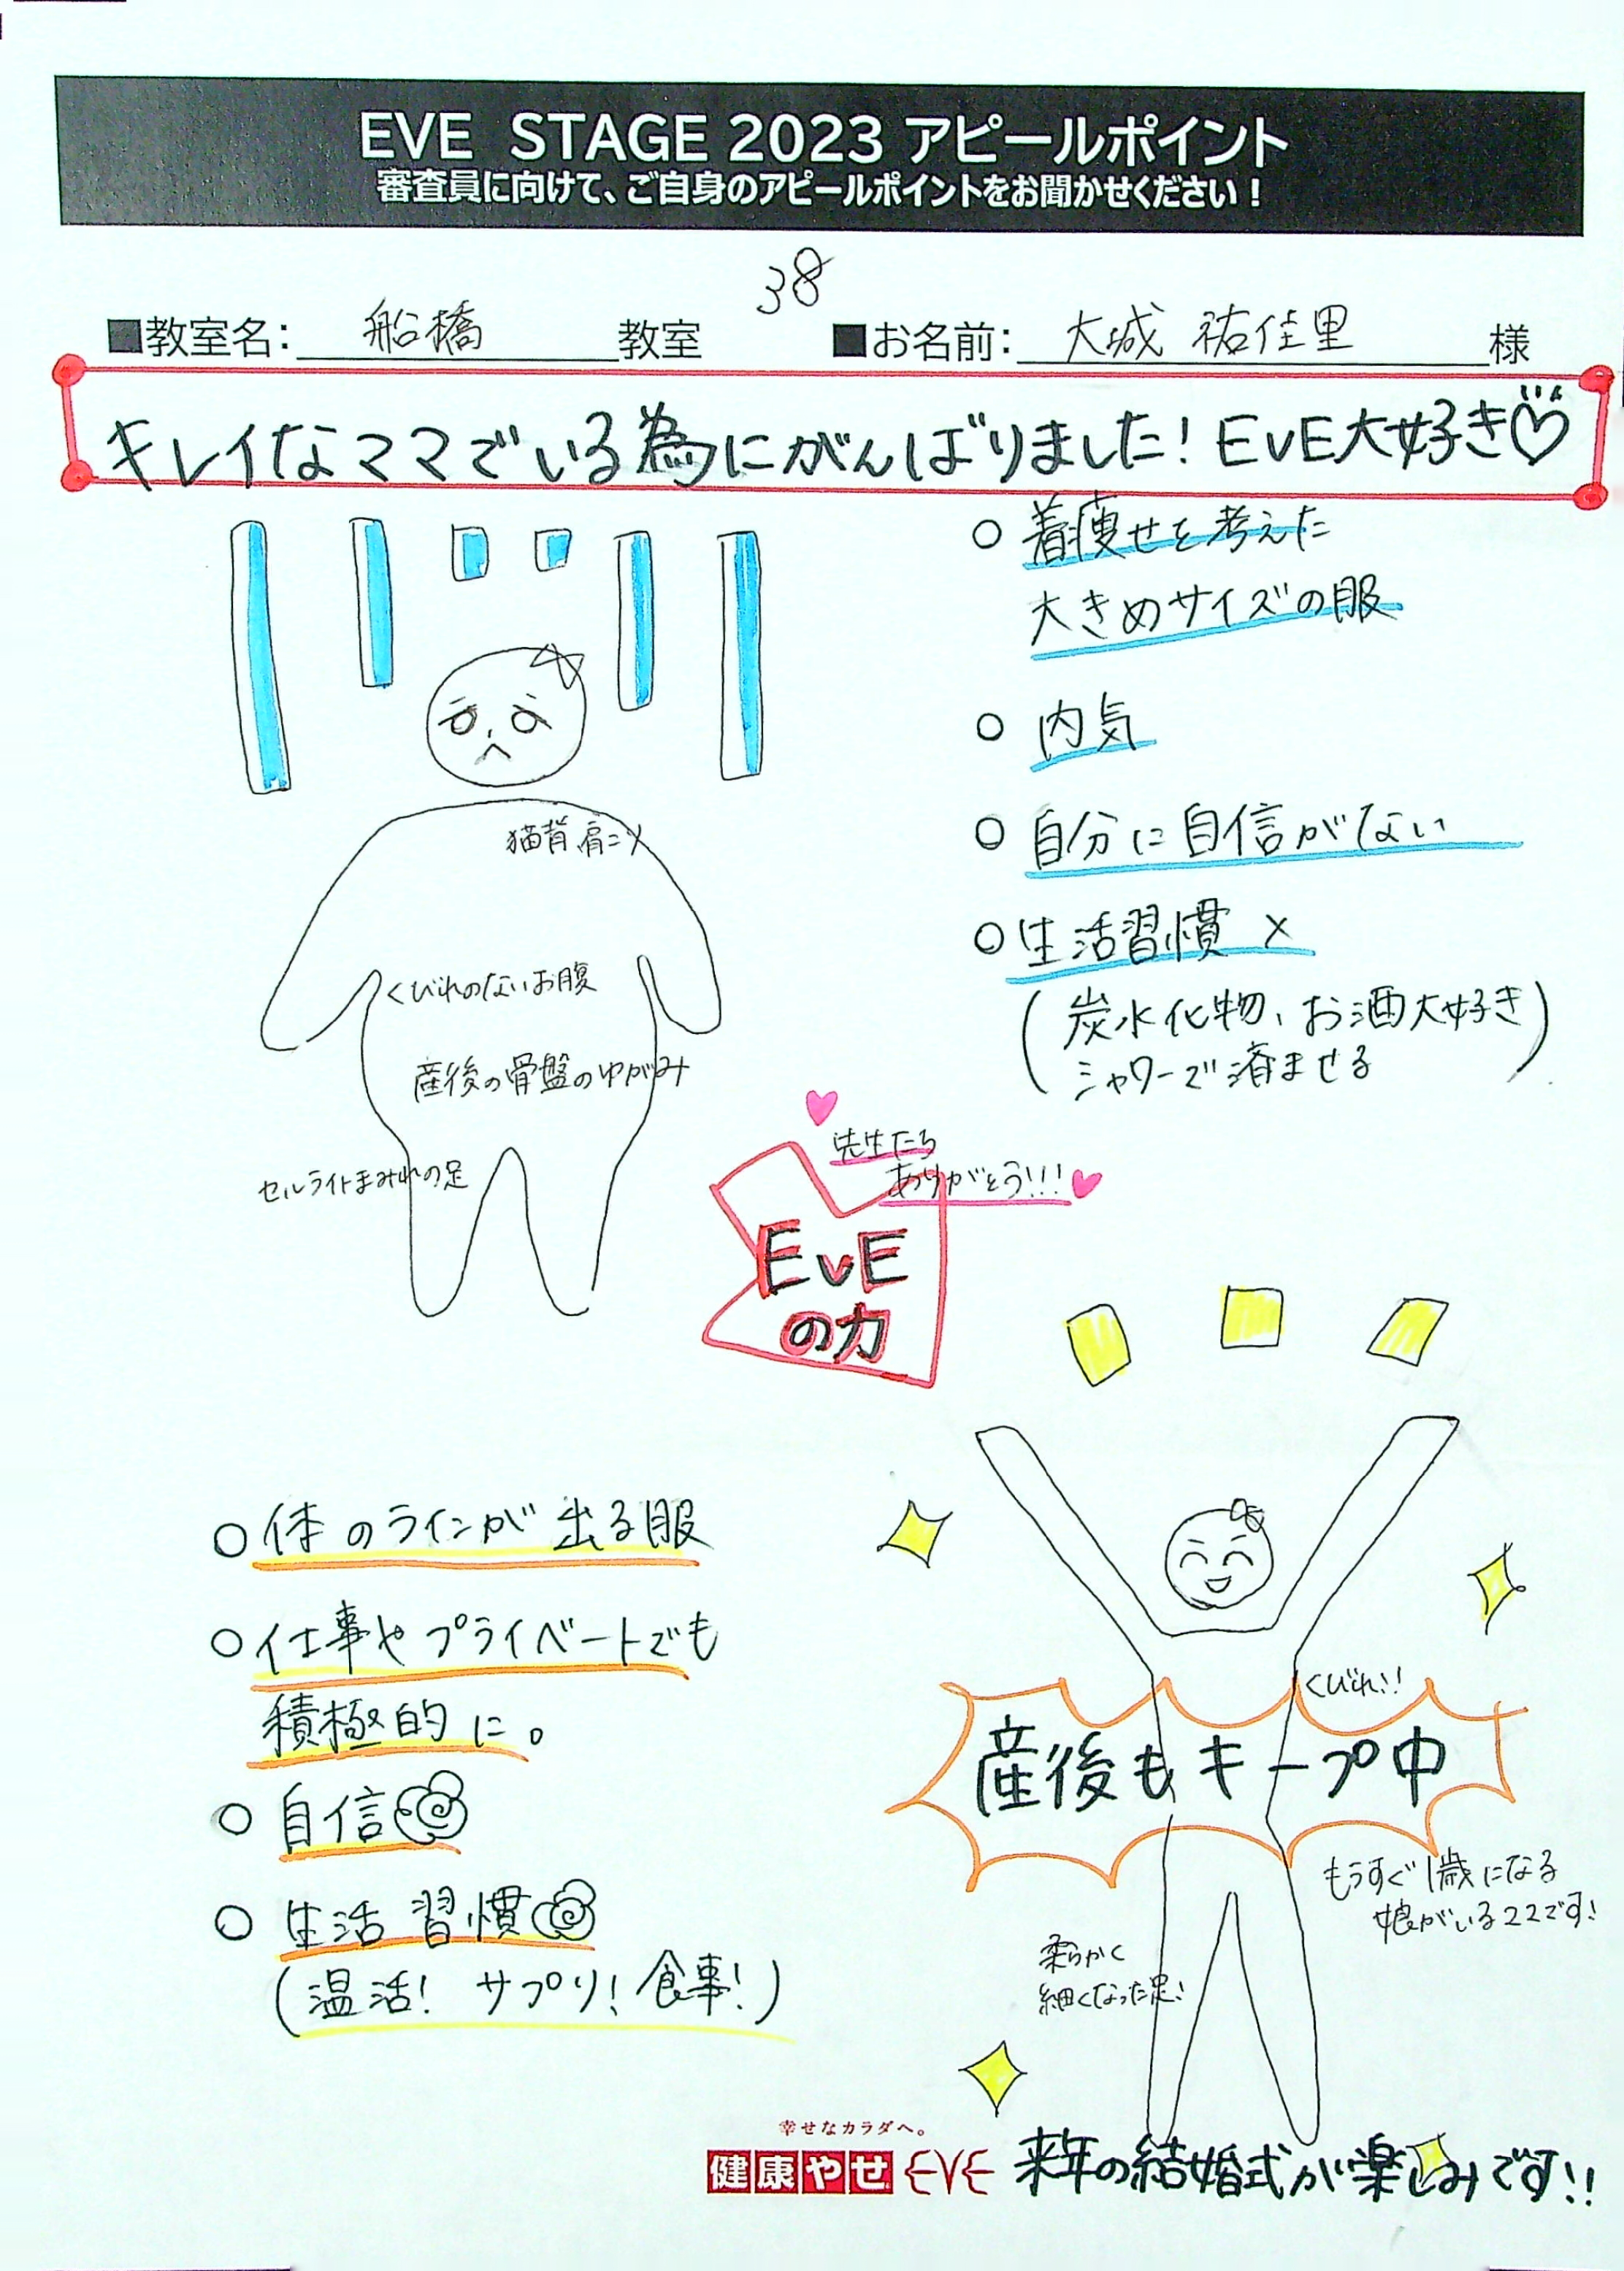 EVE STAGE 2023 アピールポイント
審査員に向けて、ご自身のアピールポイントをお聞かせください！
38
■教室名： 船橋 教室 ■お名前： 大城 祐佳里 様
キレイなママでいる為にがんばりました！EVE大好き♡
○ 着痩せを考えた
大きめサイズの服
○ 内気
○ 自分に自信がない
○ 生活習慣 ×
(炭水化物、お酒大好き
シャワーで済ませる)
猫背 肩コリ
くびれのないお腹
産後の骨盤のゆがみ
セルライトまみれの足
先生たち
ありがとう!!!
EVE
の力
○ 体のラインが出る服
○ 仕事やプライベートでも
積極的に。
○ 自信
○ 生活習慣
(温活! サプリ! 食事!)
くびれ!!
産後もキープ中
もうすぐ1歳になる
娘がいるママです!
柔らかく
細くなった足!
幸せなカラダへ。
健康やせ EVE
来年の結婚式が楽しみです!!